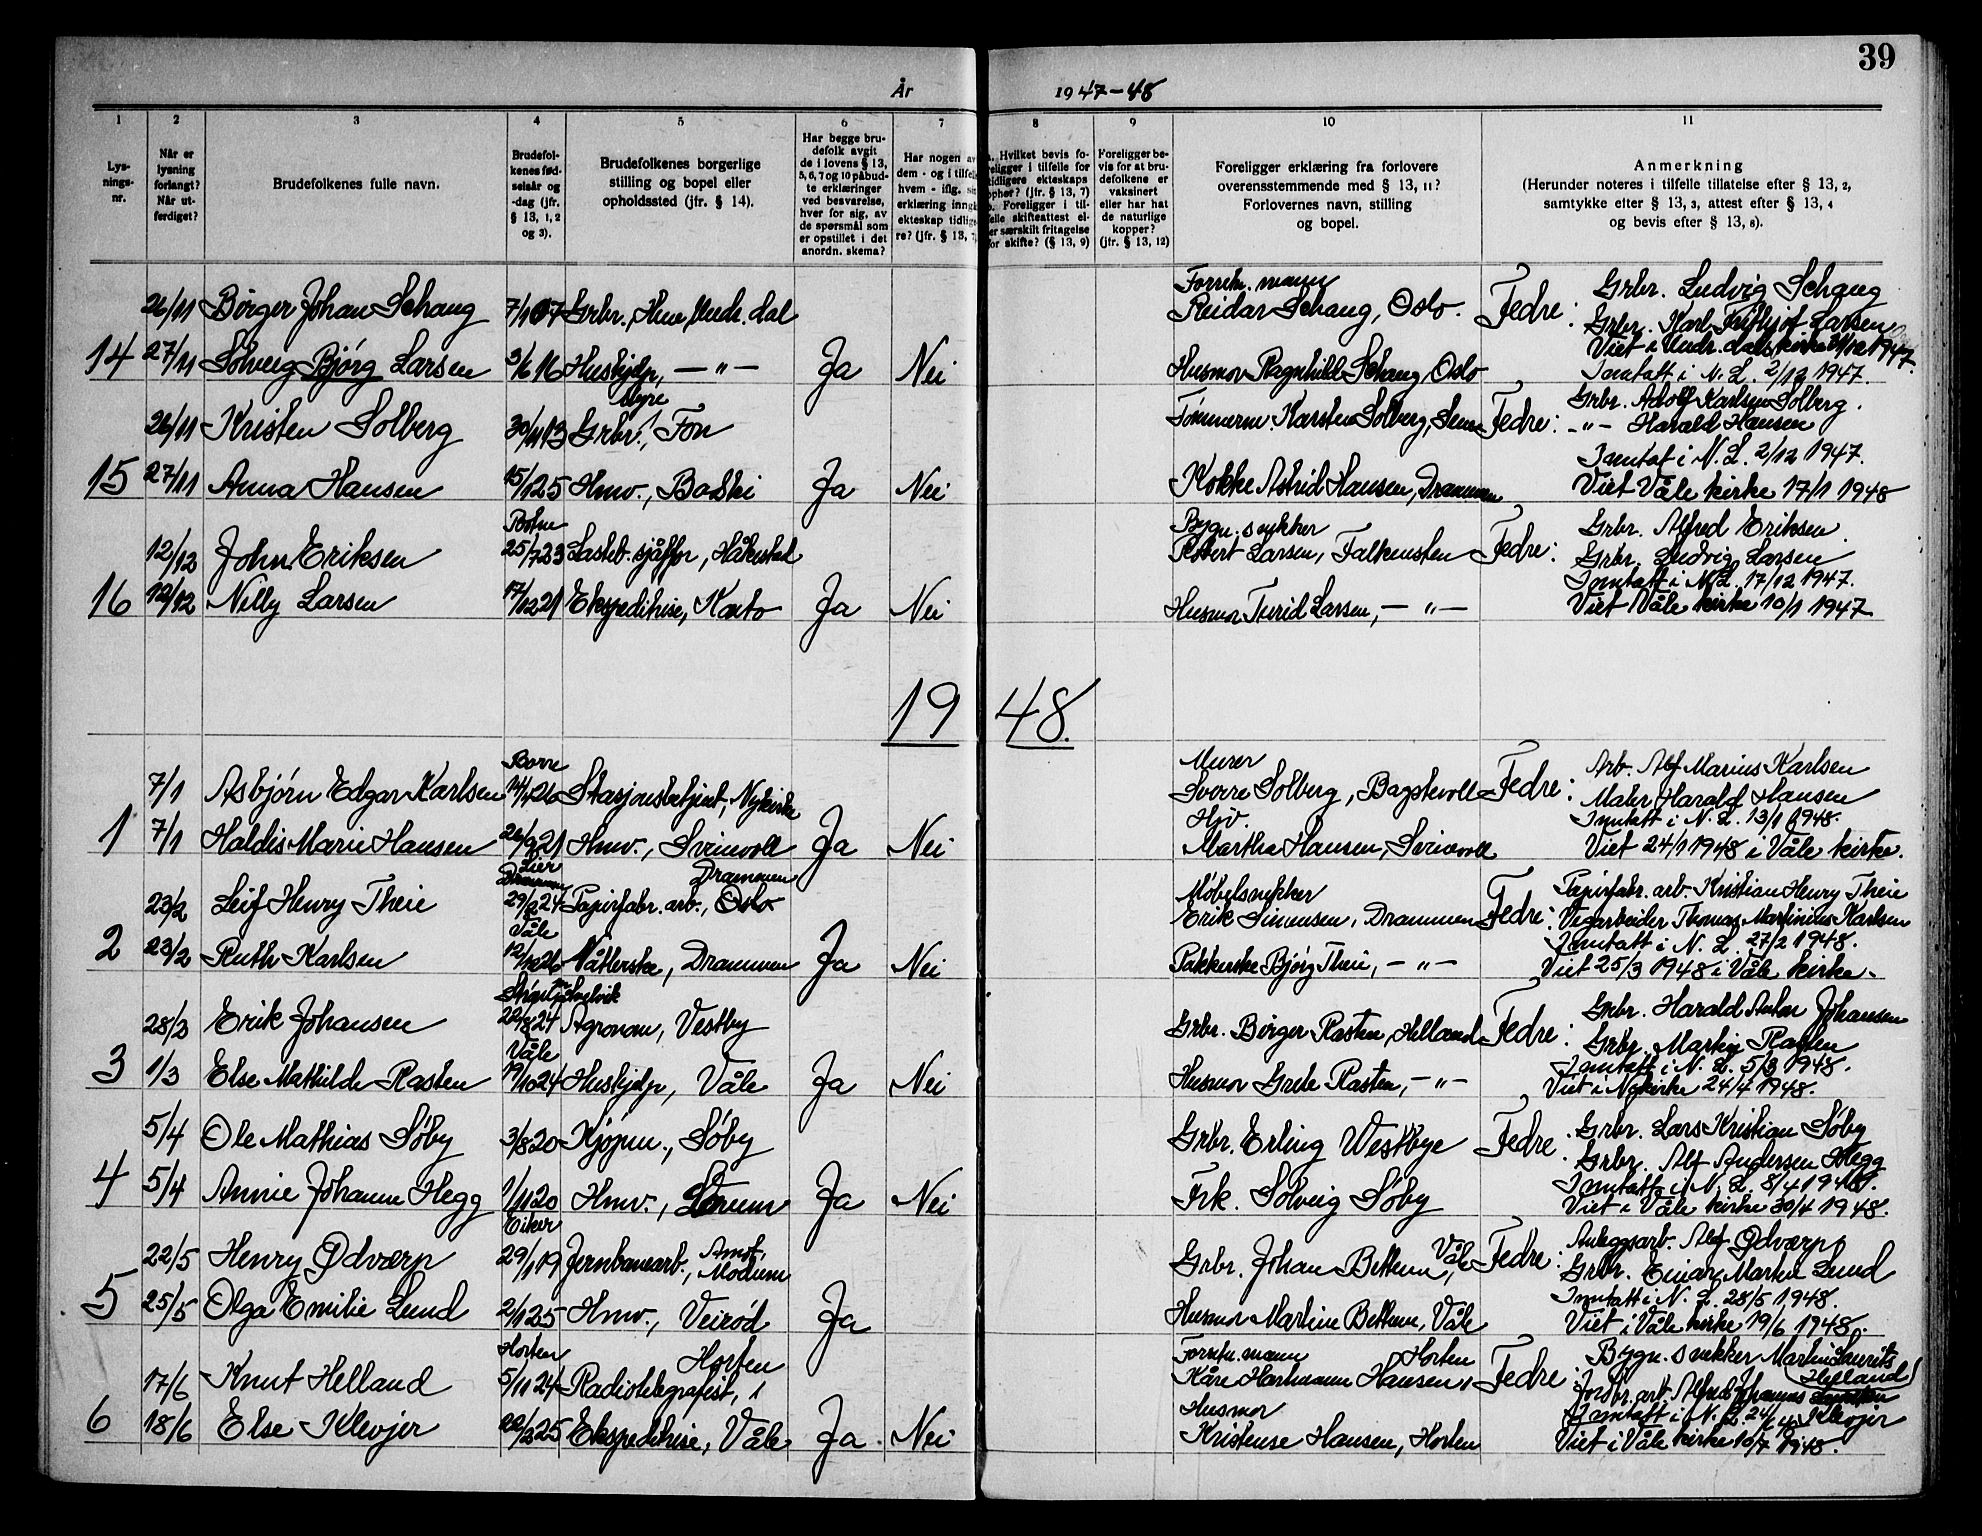 39
År 1947-48
1 2 3 4 5 6 7 8 9 10 11
Lys-
nings-
nr.
Når er
lysning
forlangt?
Når ut-
ferdiget?
Brudefolkenes fulle navn.
Brudefol-
kenes fød-
selsår og
-dag (jfr.
§ 13, 1, 2
og 3).
Brudefolkenes borgerlige
stilling og bopel eller
opholdssted (jfr. § 14).
Har begge bru-
defolk avgit
de i lovens § 13,
5, 6, 7 og 10 påbud-
te erklæringer
ved besvarelse,
hver for sig, av
de spørsmål som
er opstillet i det
anordn. skema?
Har nogen av
dem - og i tilfelle
hvem - iflg. sin
erklæring inngå
ekteskap tidlige-
re? (jfr. § 13, 7)
a. Hvilket bevis fo-
religger i tilfelle for
tidligere ekteskaps
opphør? (jfr. § 13, 7)
b. Foreligger i til-
felle skifteattest el-
ler særskilt fritagelse
for skifte? (§ 13, 9)
Foreligger be-
vis for at bru-
defolkene er
vaksinert
eller har hat
de naturlige
kopper?
(jfr. § 13, 12)
Foreligger erklæring fra forlovere
overensstemmende med § 13, 11?
Forlovernes navn, stilling
og bopel.
Anmerkning
(Herunder noteres i tilfelle tillatelse efter § 13, 2,
samtykke efter § 13, 3, attest efter § 13, 4
og bevis efter § 13, 8).
26/11 Børger Johan Schang 7/1 07 Grbr., Undr. dal
14 27/11 Solveig Bjørg Larsen 3/6 16 Hushjelp, — " — Ja Nei
Forretn. mann
Reidar Schang, Oslo.
Husmor Ragnhild Schang, Oslo
Fedre: Grbr. Ludvig Schang
Grbr. Karl Fritjof Larsen
Viet i Undr. dals kirke 1947.
Inntatt i N. L. 2/12 1947.
26/11 Kristen Solberg 30/11 13 Grbr. styre, Fon
15 27/11 Anna Hansen 15/1 25 Hmv., Bakki Ja Nei
Tømmerm. Karsten Solberg,
Kokke Astrid Hansen, Drammen
Fedre: Grbr. Adolf Karlsen Solberg.
- " - Harald Hansen
Inntat i N. L. 2/12 1947.
Viet Våle kirke 17/1 1948
12/12 John Eriksen Botne 25/7 23 Lasteb. sjåffør, Håkestad
16 12/12 Nelly Larsen 17/12 21 Ekspeditrise, Ja Nei
Bygn. snekker
Robert Larsen, Falkensten
Husmor Turid Larsen, — " —
Fedre: Grbr. Alfred Eriksen.
Grbr. Ludvig Larsen
Inntatt i N. L. 17/12 1947.
Viet i Våle kirke 10/1 1947
1948.
7/1 Asbjørn Edgar Karlsen Borre 14/4 20 Stasjonsbetjent, Nykirke
1 7/1 Haldis Marie Hansen 26/9 21 Hmv., Svinevoll Ja Nei
Murer
Sverre Solberg, Bagstevoll
Hjv.
Martha Hansen, Svinevoll
Fedre: Arb. Alf Marius Karlsen
Maler Harald Hansen
Inntatt i N. L. 13/1 1948.
Viet 24/1 1948 i Våle kirke.
23/2 Leif Henry Theie Lier Drammen 29/8 24 Papirfabr. arb., Oslo Drammen
2 23/2 Ruth Karlsen Våle 12/10 26 Nåtlerske, Drammen Ja Nei
Møbelsnekker
Erik Simensen, Drammen
Pakkerske Bjørg Theie, — " —
Fedre: Papirfabr. arb. Kristian Henry Theie
Vegarbeider Thomas Martinius Karlsen
Inntatt i N. L. 27/2 1948.
Viet 25/3 1948 i Våle kirke.
28/2 Erik Johansen Svelvik 22/8 24 Agronom, Vestby
3 1/3 Else Mathilde Rasten Våle 19/10 24 Hushjelp, Våle Ja Nei
Grbr. Børger Rasten, Helland
Husmor Grete Rasten, — " —
Fedre: Grbr. Harald Anton Johansen
Grbr. Martin Rasten
Inntatt i N. L. 5/3 1948.
Viet i Nykirke 24/4 1948.
5/4 Ole Mathias Søby 3/8 20 Kjøpm., Søby
4 5/4 Annie Johanne Hegg 1/11 20 Hmv., Ja Nei
Grbr. Erling Westbye
Frk. Solveig Søby
Fedre: Grbr. Lars Kristian Søby
Grbr. Alf Andersen Hegg
Inntatt i N. L. 8/4 1948.
Viet i Våle kirke 30/4 1948.
22/5 Henry Ødværp Eiker 29/1 19 Jernbanearb., Åmot, Modum
5 25/5 Olga Emilie Lund 2/1 25 Hmv., Veirød Ja
Grbr. Johan Bettum, Våle
Husmor Martine Bettum, Våle
Fedre: Anleggsarb. Alf Ødværp
Grbr. Einar Martin Lund
Inntatt i N. L. 28/5 1948.
Viet i Våle kirke 19/6 1948.
17/6 Knut Helland Horten 5/11 24 Radiotelegrafist, Horten
6 18/6 Else Klevjer 22/2 25 Ekspeditrise, Våle Ja. Nei
Forretn. mann
Kåre Hartmann Hansen, Horten
Husmor
Kristense Hansen, Horten
Fedre: Bygn. snekker Martin Laurits Helland
Jordbr. arb. Alfred Johannes Klevjer
Inntatt i N. L. 24/6 48
Viet i Våle kirke 10/7 1948.